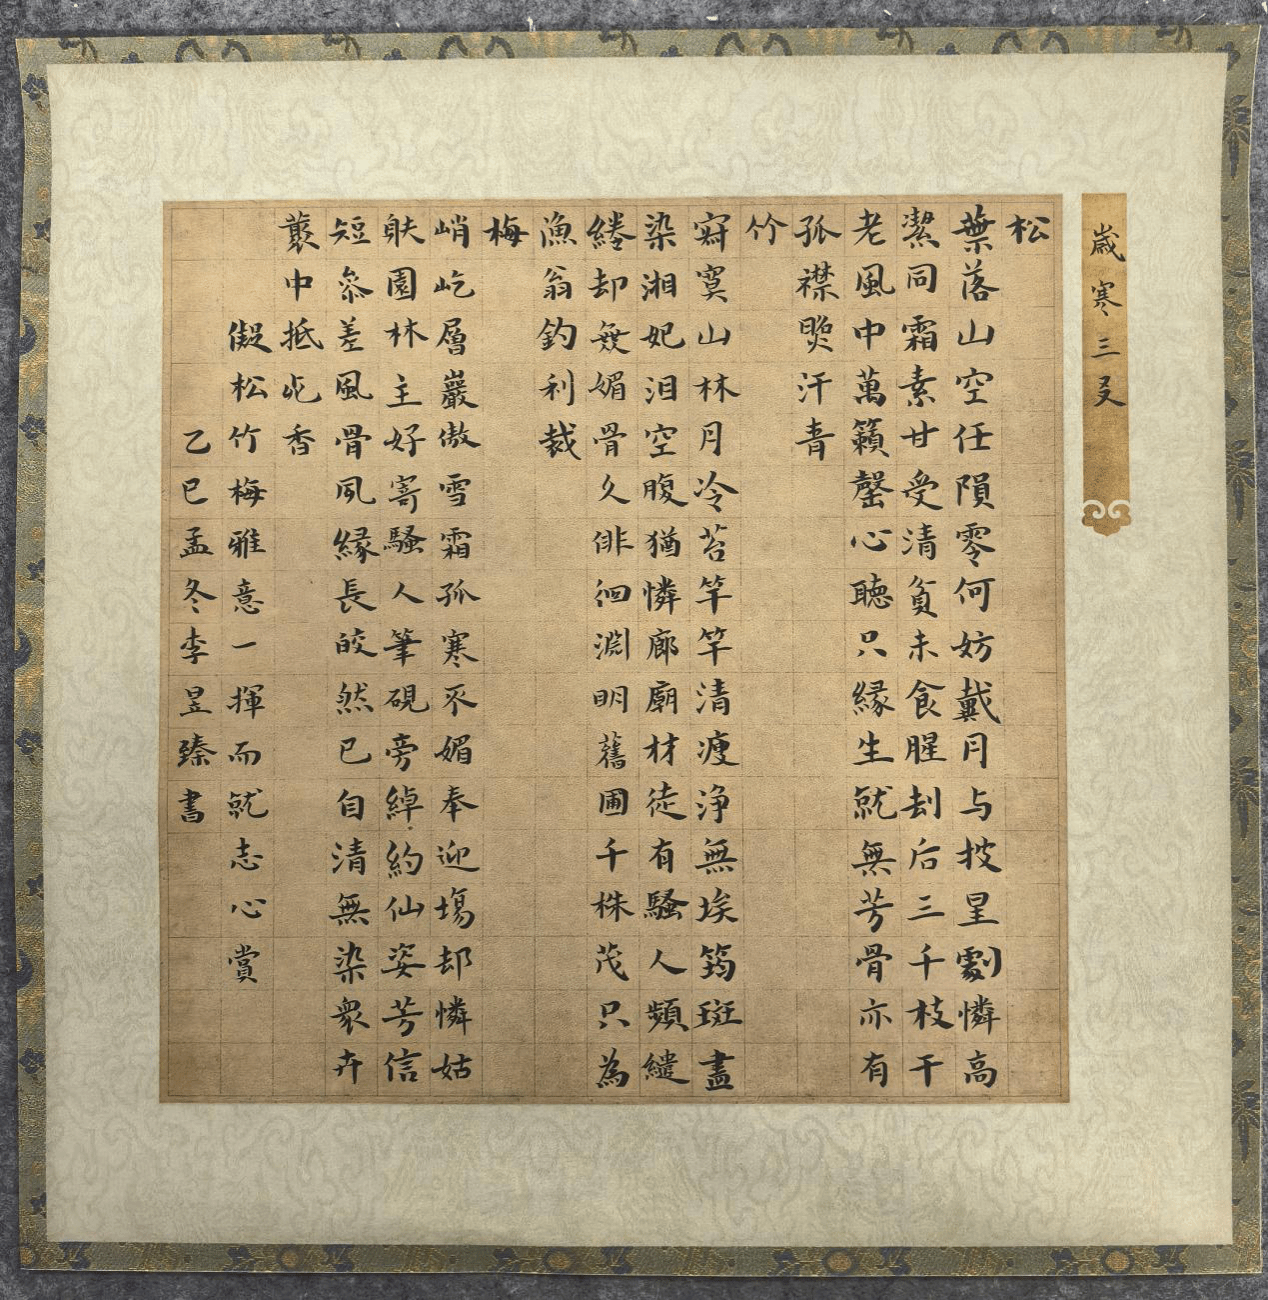 歲寒三友
松
葉落山空任隕零何妨戴月与披星劇憐高
潔同霜素甘受清貧未食腥刦后三千枝干
老風中萬籟罄心聽只緣生就無芳骨亦有
孤襟照汗青
竹
寂寞山林月冷苔竿竿清瘦浄無埃筠斑盡
染湘妃泪空腹猶憐廊廟材徒有騷人頻繾
綣却無媚骨久徘徊淵明舊圃千株茂只為
漁翁釣利裁
梅
峭屹層巖傲雪霜孤寒不媚奉迎場却憐姑
射園林主好寄騷人筆硯旁綽約仙姿芳信
短參差風骨夙緣長皎然已自清無染衆卉
叢中抵死香
擬松竹梅雅意一揮而就志心賞
乙巳孟冬李昱臻書